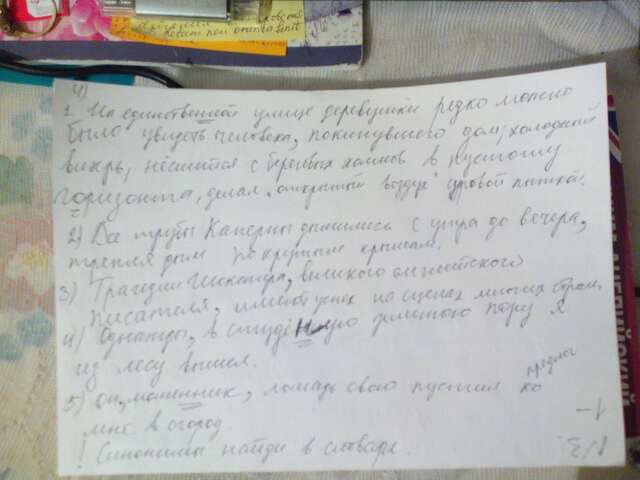 Rotam rem omnia sint
4)
1. На единственной улице деревушки редко можно
было увидеть человека, покинувшего дом; холодный
вихрь, несшийся с береговых холмов в пустоту
горизонта, делал "открытый воздух" суровой пыткой.
2) Все трубы Каперны дымились с утра до вечера,
трепля дым по крутым крышам.
3) Трагедии Шекспира, великого английского
писателя, имеют успех на сценах многих стран.
4) Однажды, в студёную зимнюю пору я
из лесу вышел.
5) он, мошенник, лошадь свою пустил ко
предлог
мне в огород
! Синонимы найди в словаре.